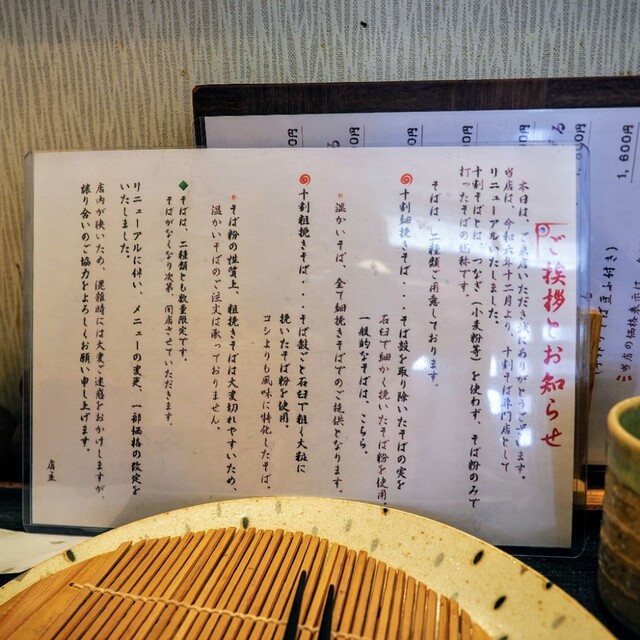 ご挨拶とお知らせ
本日は、ご来店いただき誠にありがとうございます。
当店は、令和 年十二月より、十割そば専門店として
リニューアルいたしました。
十割そばとは、つなぎ（小麦粉等）を使わず、そば粉のみで
打ったそばの名称です。
そばは、二種類ご用意しております。
十割細挽きそば・・・そば殻を取り除いたそばの実を
石臼で細かく挽いたそば粉を使用
一般的なそばは、こちら。
温かいそば、全て細挽きそばでのご提供となります。
十割粗挽きそば・・・そば殻ごと石臼で粗く大粒に
挽いたそば粉を使用。
コシよりも風味に特化したそば。
そば粉の性質上、粗挽きそばは大変切れやすいため、
温かいそばのご注文は承っておりません。
そばは、二種類とも数量限定です。
そばがなくなり次第、閉店させていただきます。
リニューアルに伴い、メニューの変更、一部価格の改定を
いたしました。
店内が狭いため、混雑時には大変ご迷惑をおかけしますが、
譲り合いのご協力をよろしくお願い申し上げます。
店主
1,600円
00円
00円
00円